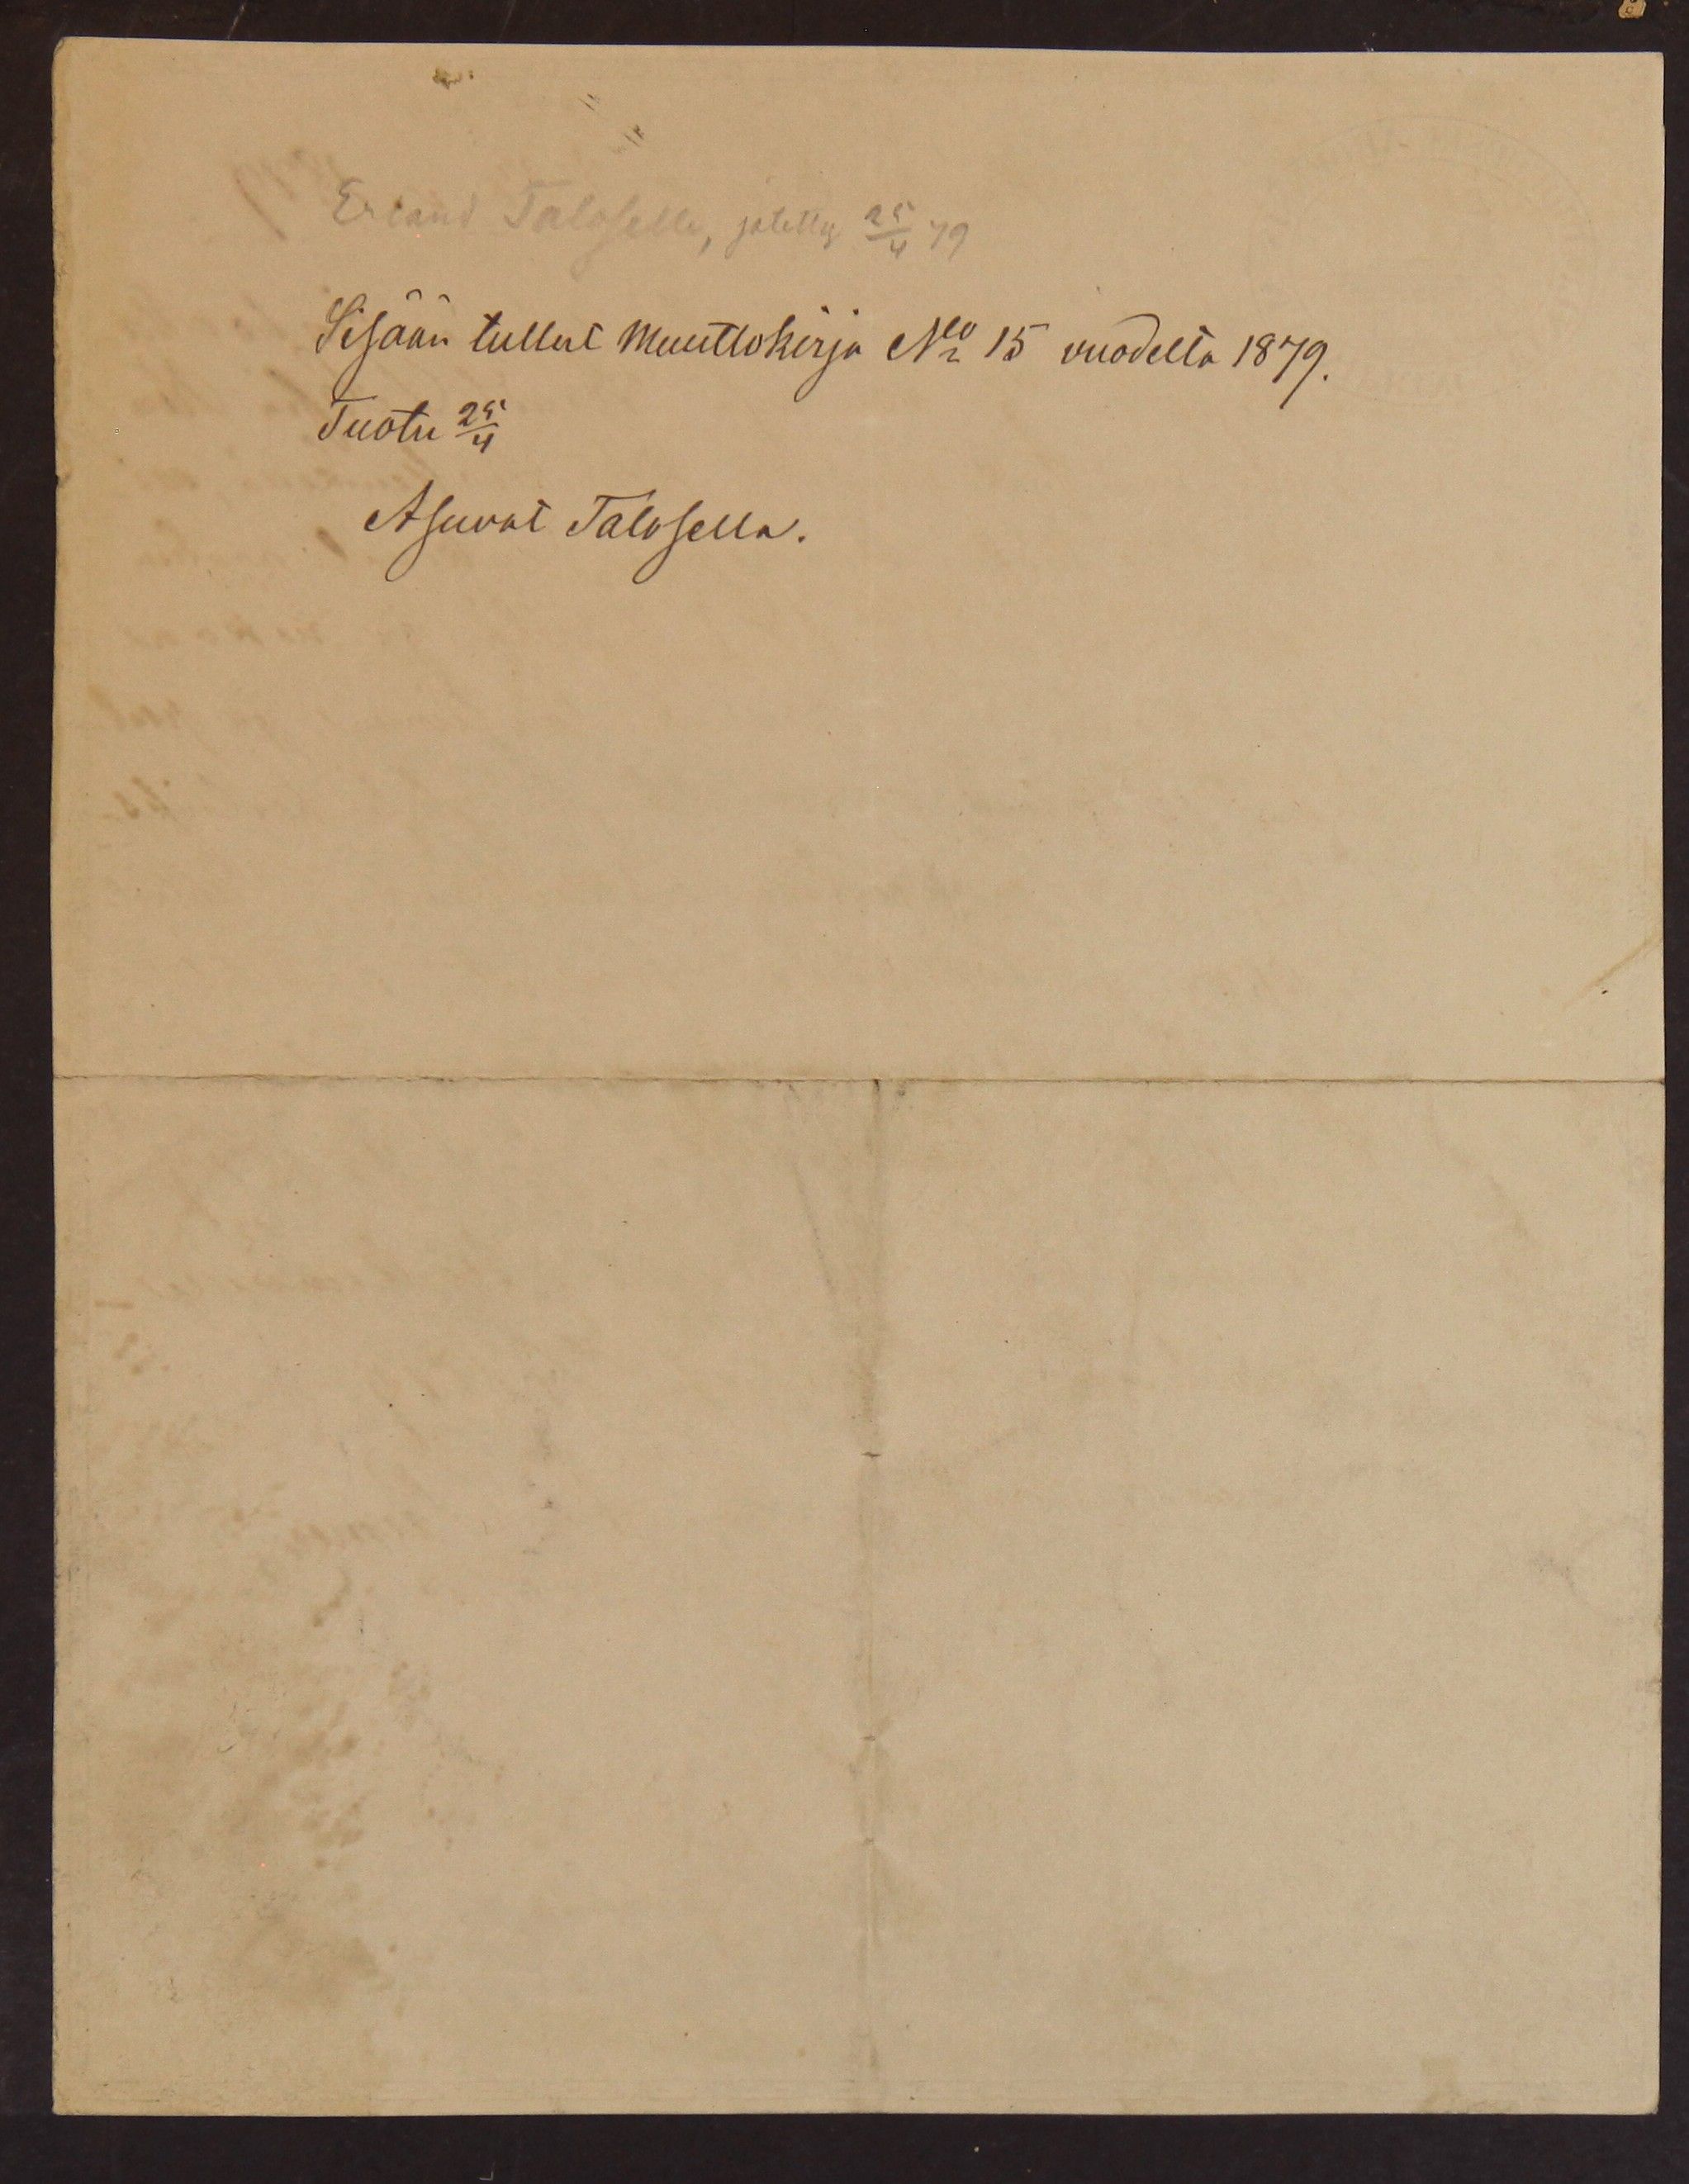 Erland Talosella, jätetty 25/4 79
Sisään tullut Muuttokirja No 15 vuodelta 1879.
Tuotu 25/4
Asuvat Talosella.